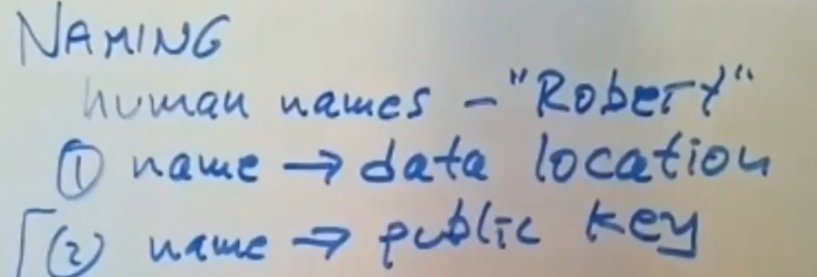 NAMING
human names - "Robert"
① name → data location
② name → public key